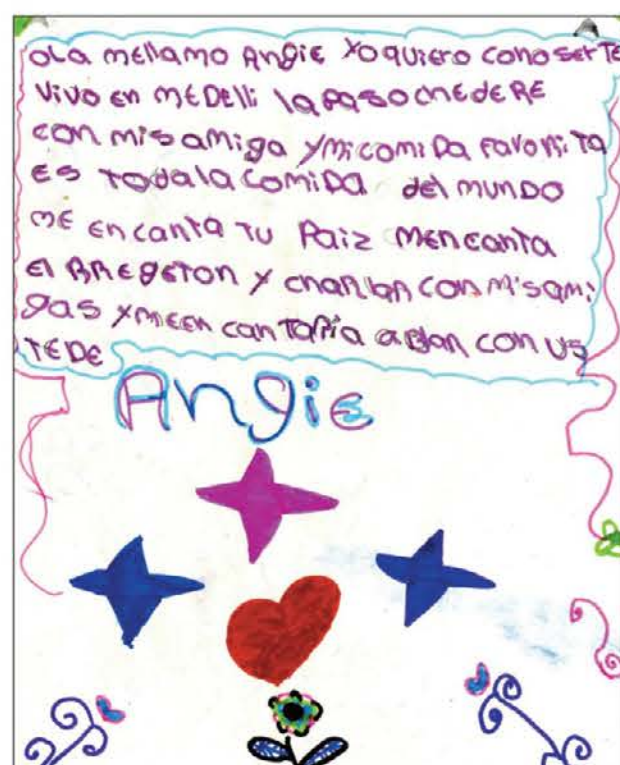 ola mellamo Angie Yo quiero conoserte
vivo en medelli la paso chedere
con mis amiga y mi comida favorita
es toda la comida del mundo
me encanta tu Paiz mencanta
el RRegeton y charlar con mis ami
gas y me en cantaria ablar con us
tede
Angie